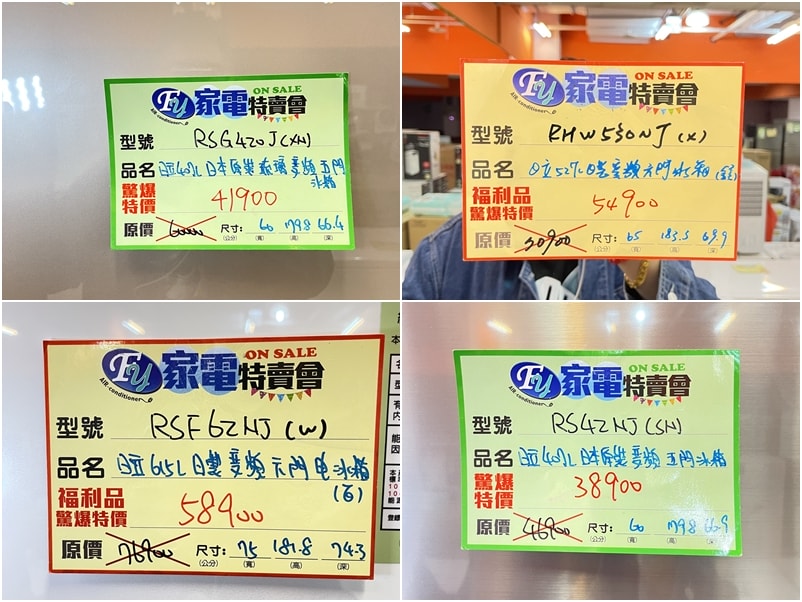 FY 家電特賣會 ON SALE
AIR-conditioner
型號 RSG420J(XN)
品名 日立407L日本原裝玻璃變頻五門冰箱
驚爆特價 41900
原價 尺寸:(公分) 60(寬) 179.8(高) 66.4(深)
FY 家電特賣會 ON SALE
AIR-conditioner
型號 RHW530NJ(X)
品名 日立527L日製變頻六門冰箱
福利品驚爆特價 54900
原價 尺寸:(公分) 65(寬) 183.3(高) 69.9(深)
FY 家電特賣會 ON SALE
AIR-conditioner
型號 RSF62NJ(W)
品名 日立615L日製變頻六門電冰箱(白)
福利品驚爆特價 58900
原價 76900 尺寸:(公分) 75(寬) 181.8(高) 74.3(深)
FY 家電特賣會 ON SALE
AIR-conditioner
型號 RS42NJ(SN)
品名 日立407L日本原裝變頻五門冰箱
驚爆特價 38900
原價 46900 尺寸:(公分) 60(寬) 179.8(高) 66.9(深)